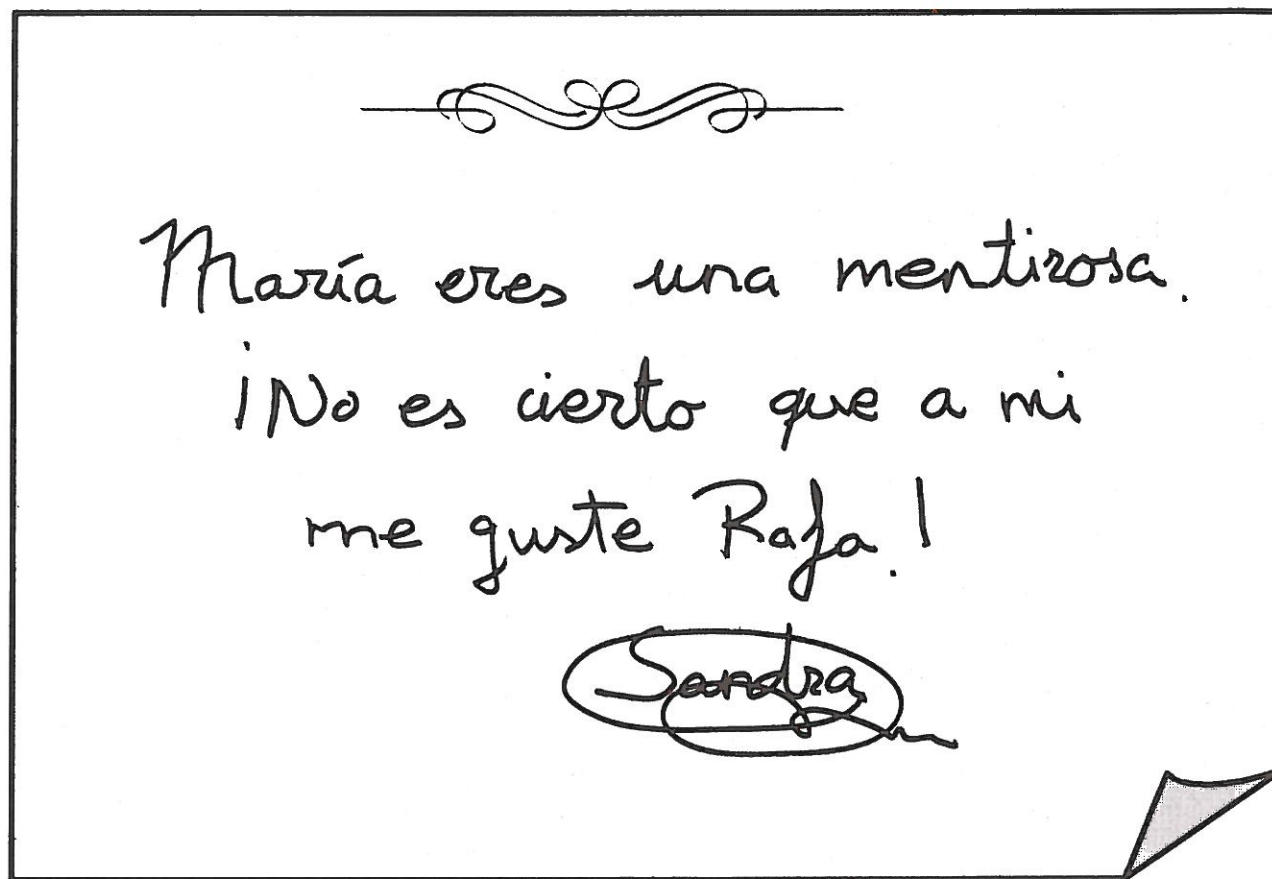 María eres una mentirosa.
¡No es cierto que a mi
me guste Rafa!
Sandra